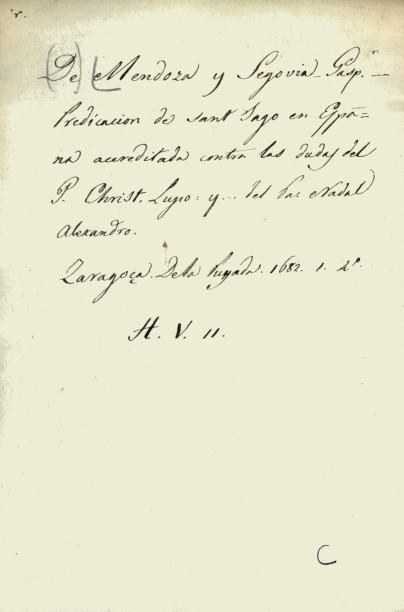 (De) Mendoza y Segovia_ Gasp. —
Predicacion de sant Iago en Espa=
na acreditada contra las dudas del
P. Christ. Lupo: y... del Pa: Nadal
Alexandro.
Zaragoça. Dela Puyada. 1682. 1. 4º.
H. V. 11.
C